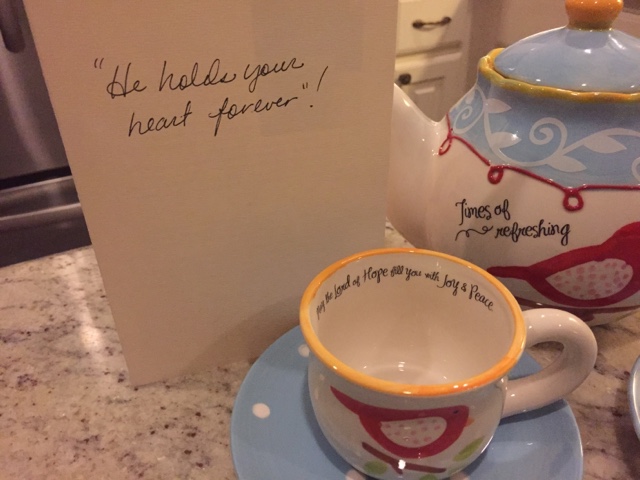 "He holds your
heart forever"!
Times of
refreshing
May the Lord of Hope fill you with Joy & Peace.